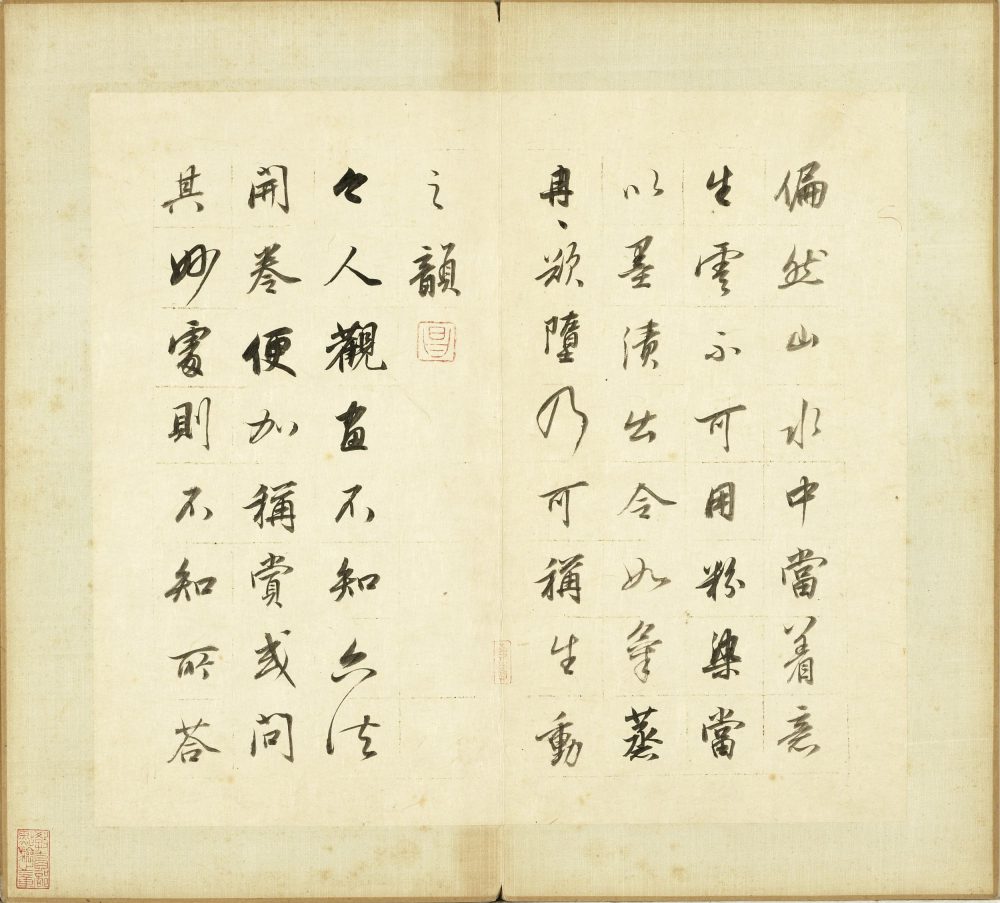 偏然山水中當着意
生雲不可用粉染當
以墨漬出令如氣蒸
冉〻欲墮乃可稱生動
之韻
今人觀畫不知六法
開卷便加稱賞或問
其妙處則不知所答